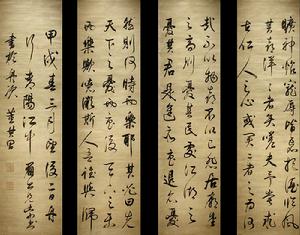 曠神怡 把酒臨風
其喜洋洋者矣嗟夫予嘗求
古仁人之心或異二者之為何
哉不以物喜不以己悲居廟堂
憂其民處江湖之
憂其君是進亦憂退亦憂
然則何時而樂耶其必曰先
天下之憂而憂後天下之樂
而樂歟噫微斯人吾誰與歸
甲戌春三月望後二日舟
行青陽江中
書於舟次 董其昌